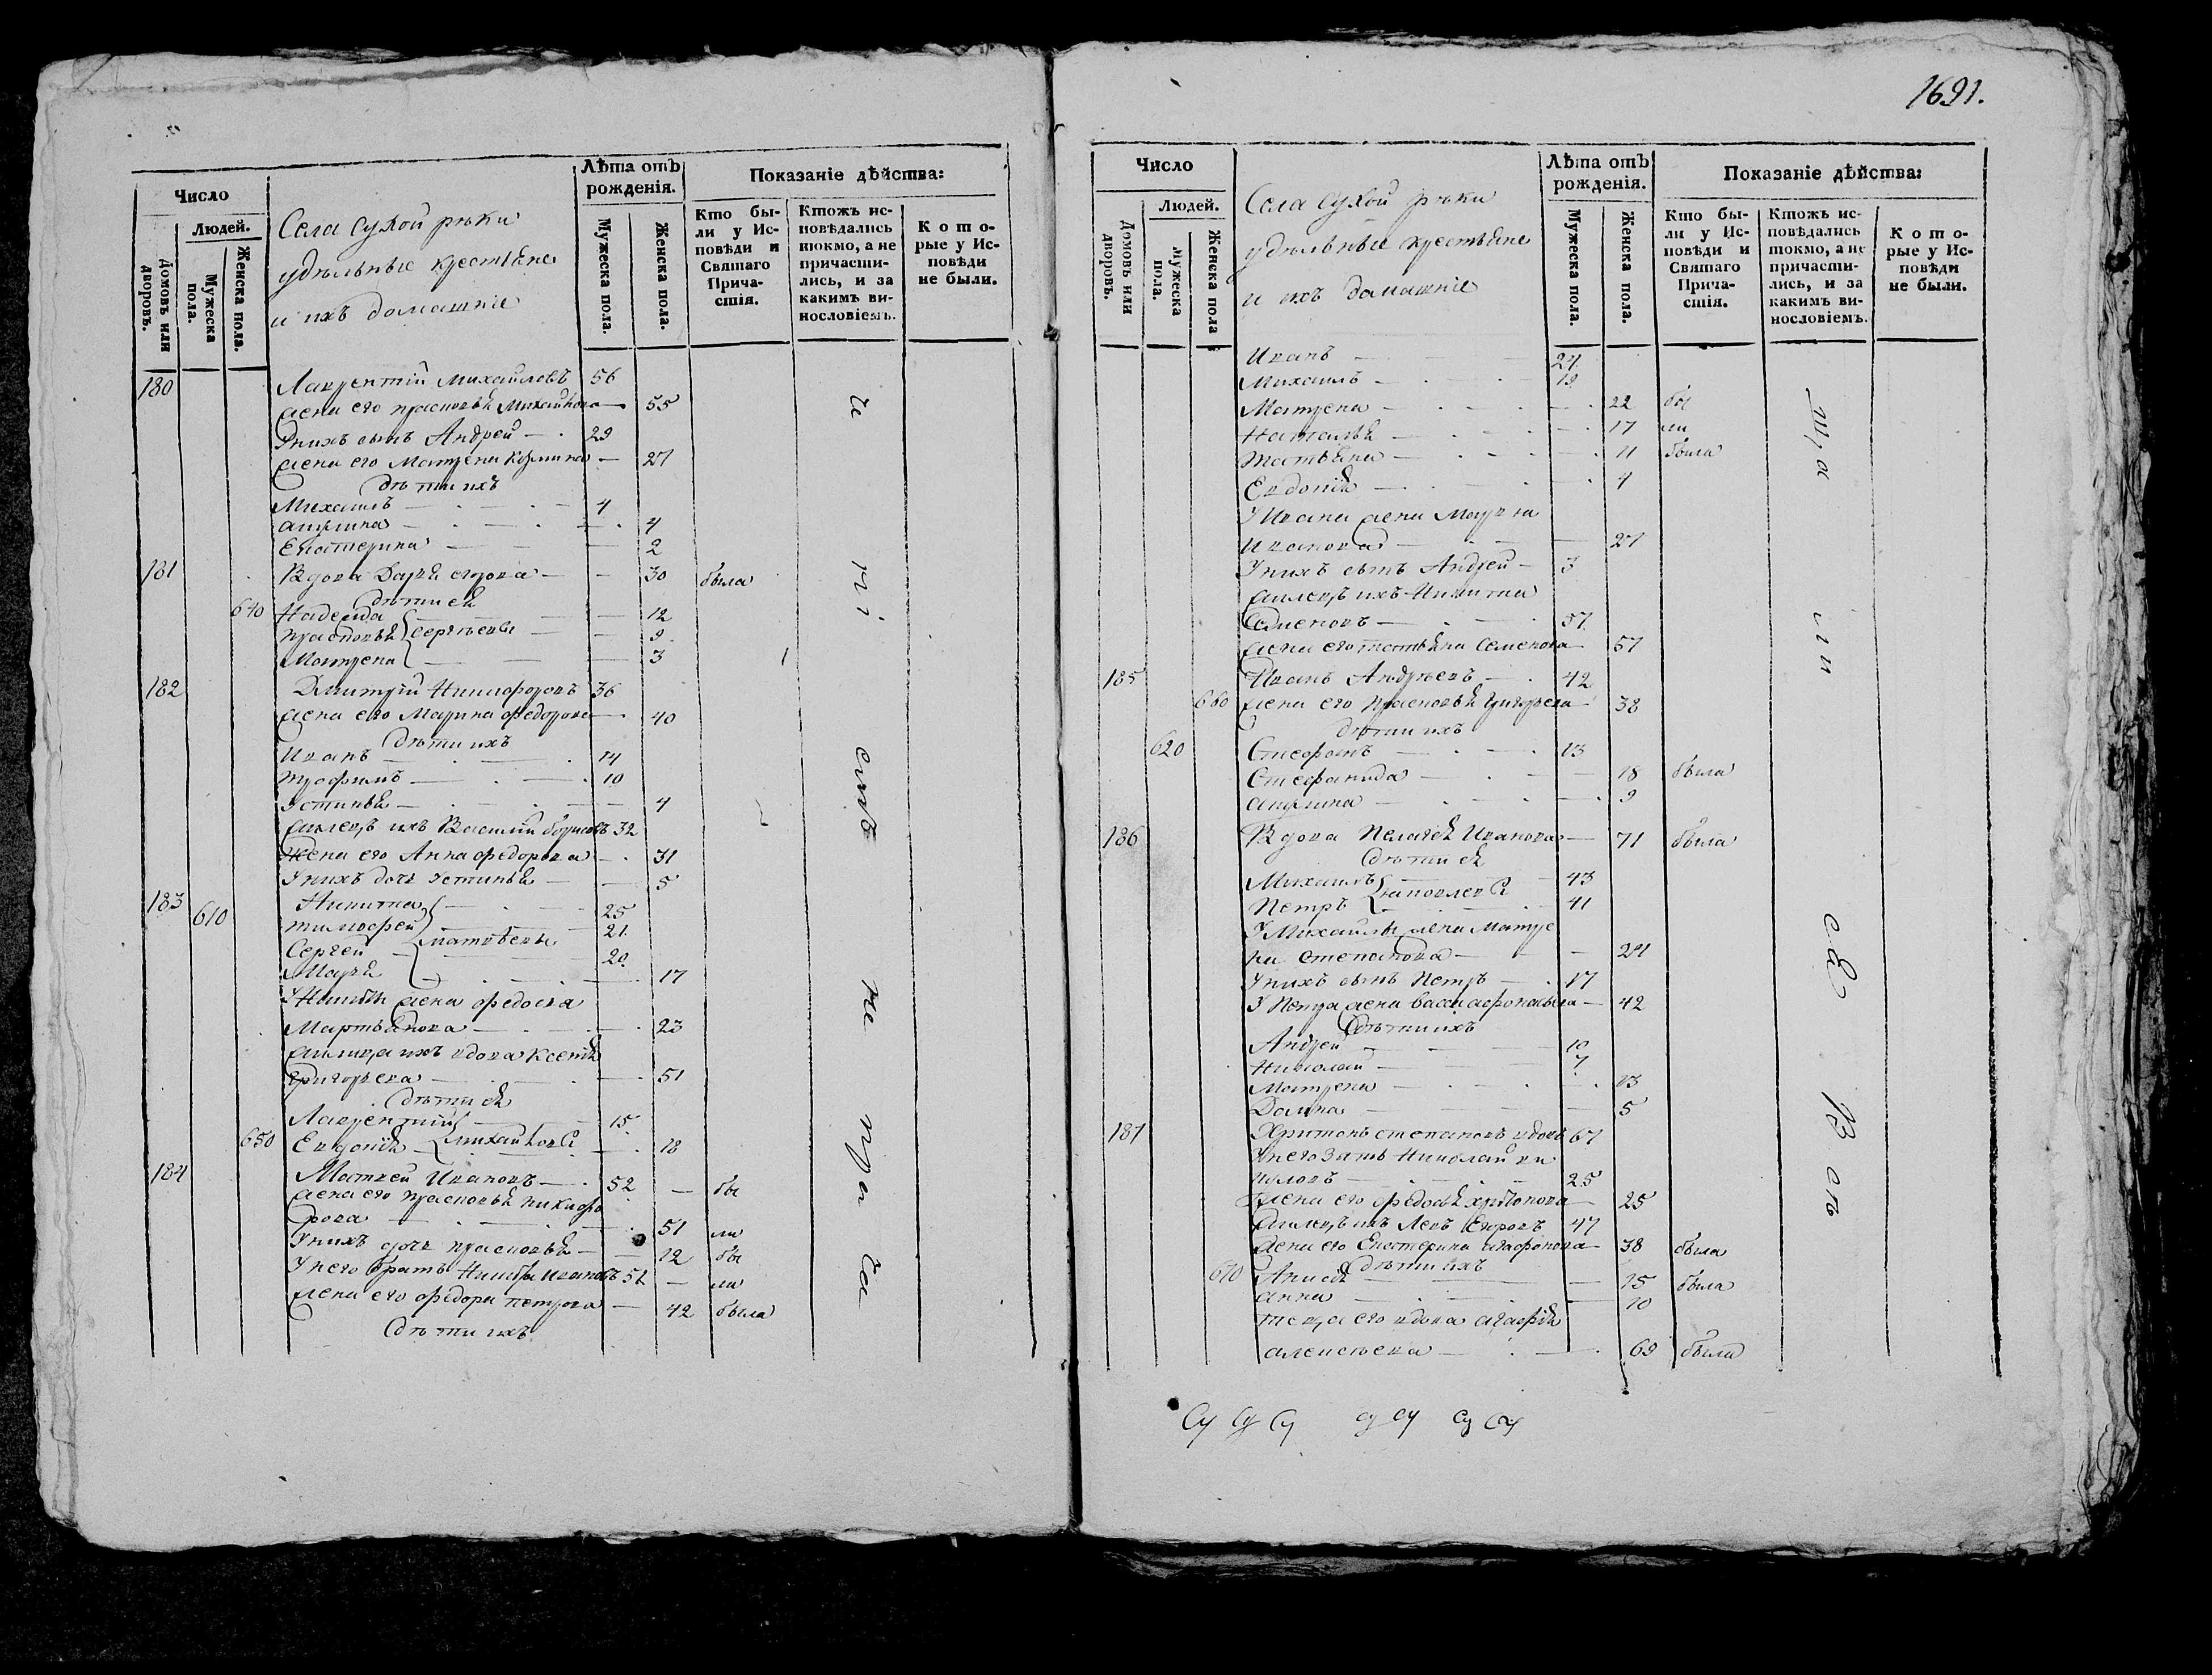 1691.
Число
Людей.
Домовъ или дворовъ.
Мужеска пола.
Женска пола.
Села Сухой рѣки
удѣльные крестьяне
и ихъ домашніе
Лѣта отъ рожденія.
Мужеска пола.
Женска пола.
Показаніе дѣйства:
Кто бы-
ли у Ис-
повѣди и
Святаго
Прича-
стія.
Ктожъ ис-
повѣдались
токмо, а не
причасти-
лись, и за
какимъ ви-
нословіемъ.
К о т о-
рые у Ис-
повѣди
не были.
180 Лаврентій Михайловъ 56
жена его Прасковья Михайлова 55
У нихъ сынъ Андрей 29
жена его Матрена Козмина 27
дѣти ихъ
Михаилъ 4
Акулина 4
Екатерина 2
181 Вдова Дарья Егорова 30 была
дѣти ея
640 Надежда 12
Прасковья Сергѣевы 9
Матрена 3
182 Дмитрій Никифоровъ 36
жена его Марина Федорова 40
дѣти ихъ
Иванъ 14
Трофимъ 10
Устинья 4
шлецъ ихъ Василій Борисовъ 32
Жена его Анна Федорова 31
У нихъ дочь Устинья 5
183 Никита 25
610 Тимофей 21
Сергей Матвѣевы 20
Марья 17
У Никиты жена Федосья
Мартьянова 23
ихъ вдова Ксенія
Григорьева 51
дѣти ея
Лаврентій 15
650 Евдокія Михайловы 18
184 Матвей Ивановъ 52 бы
жена его Прасковья Никифо
рова 51 ли
У нихъ дочь Прасковья 12 бы
У него братъ Никита Ивановъ 51 ли
жена его Федора Петрова 42 была
дѣти ихъ
Число
Людей.
Домовъ или дворовъ.
Мужеска пола.
Женска пола
Села Сухой рѣки
удѣльные крестьяне
и ихъ домашніе
Лѣта отъ рожденія.
Мужеска пола.
Женска пола.
Показаніе дѣйства:
Кто бы-
ли у Ис-
повѣди и
Святаго
Прича-
стія.
Ктожъ ис-
повѣдались
токмо, а не
причасти-
лись, и за
какимъ ви-
нословіемъ.
К о т о-
рые у Ис-
повѣди
не были.
Иванъ 24
Михаилъ 19
Матрена 22 бы
Наталья 17 ли
Татьяна 11 была
Евдокія 4
У Ивана жена Марья
Иванова 27
У нихъ сынъ Андрей 3
ихъ Никита
Семеновъ 57
жена его Татьяна Семенова 57
185 Иванъ Андреевъ 42
660 жена его Прасковья Григорьева 38
дѣти ихъ
620 Стефанъ 13
Стефанида 18 была
Акулина 9
186 Вдова Пелагея Иванова 71 была
дѣти ея
Михаилъ 43
Петръ 41
У Михайлы жена Матре
на Степанова 24
У нихъ сынъ Петръ 17
У Петра жена Васса Афонасьева 42
дѣти ихъ
Андрей 10
Николай 7
Матрена 13
Домна 5
187 Харитонъ Степановъ вдовъ 67
У него зять Николай Ви
куловъ 25
Жена его Федосья Харитонова 25
ихъ Левъ Егоровъ 47
Жена его Екатерина Агафонова 38 была
дѣти ихъ
670 Анисья 15 была
Анна 10
теща его вдова Агафія
Алексѣева 69 была
Су Су Су су су су су